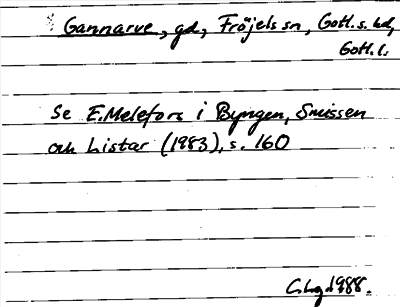 Gannarve, gd, Fröjels sn, Gotl. s. hd,
Gotl. l.
Se E. Melefors i Byngen, Snissen
och Listar (1983), s. 160
C. Lgd 1988.